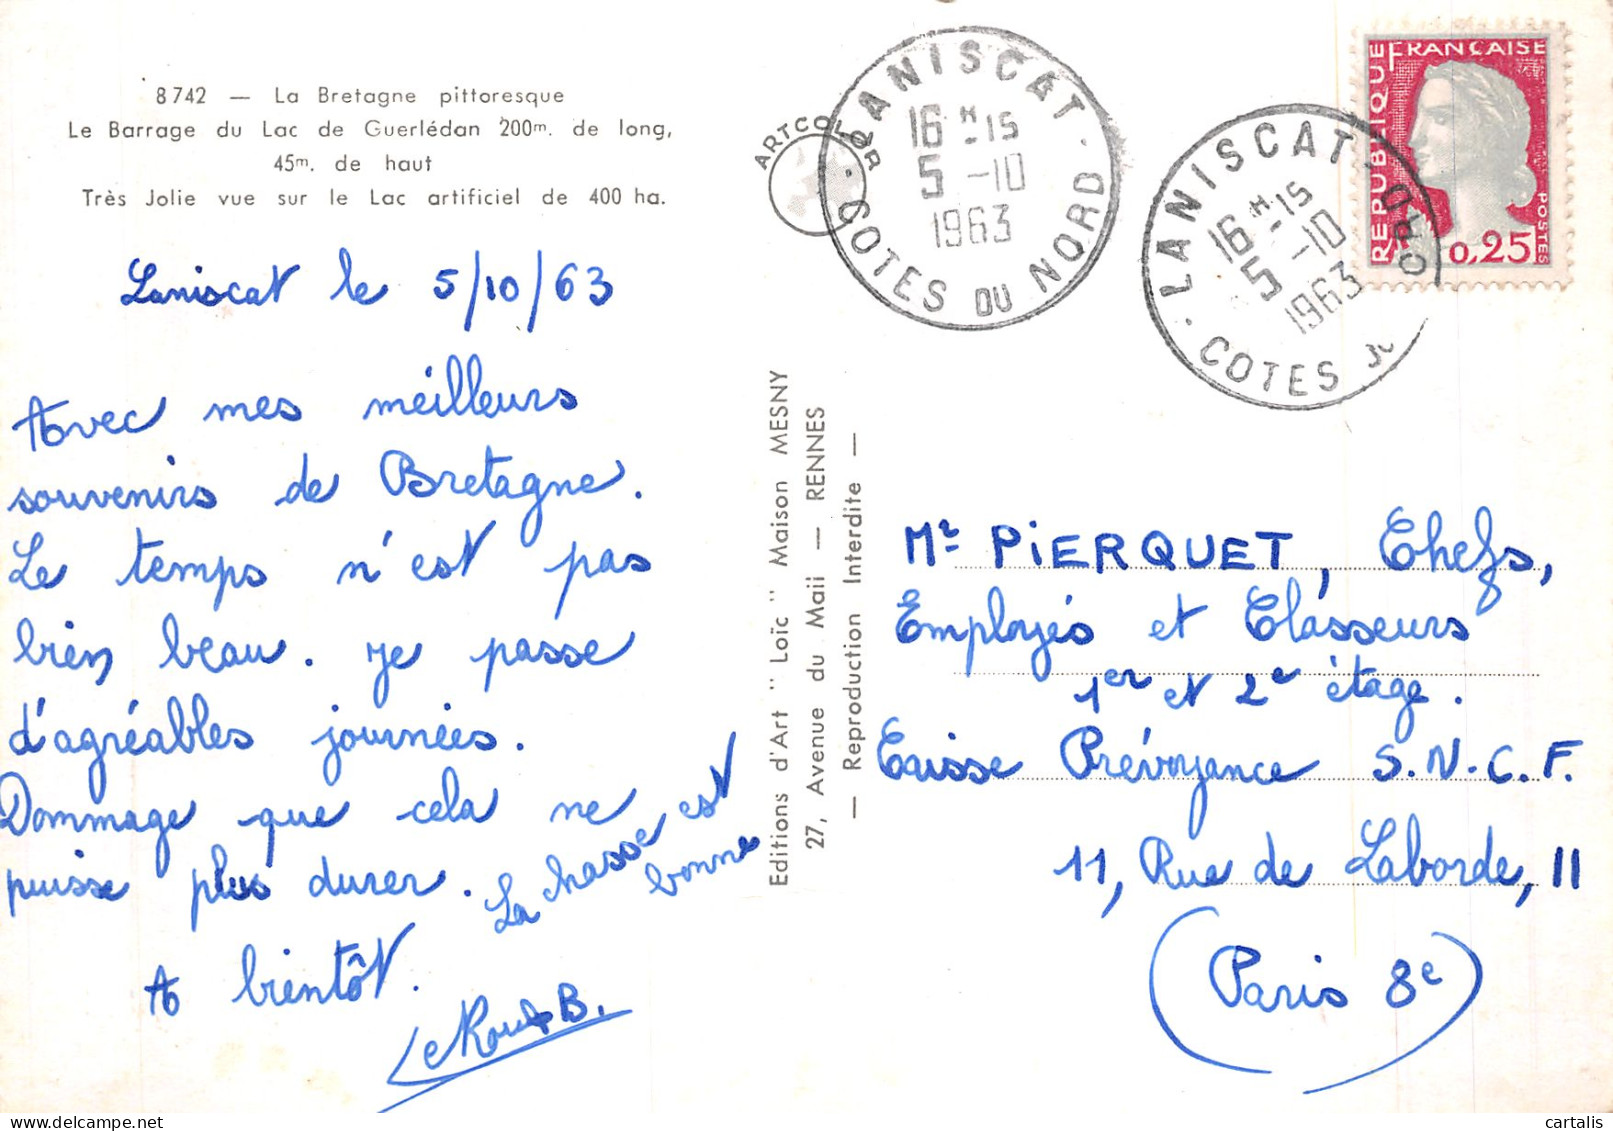 8742 — La Bretagne pittoresque
Le Barrage du Lac de Guerlédan 200m. de long,
45m. de haut
Très Jolie vue sur le Lac artificiel de 400 ha.
Laniscat le 5/10/63
Avec mes meilleurs
souvenirs de Bretagne.
Le temps n'est pas
bien beau. Je passe
d'agréables journées.
Dommage que cela ne
puisse plus durer.
La chasse est
bonne
A bientôt.
B.
ARTCOLOR
LANISCAT
16H15
5-10
1963
COTES DU NORD
LANISCAT
16H15
5-10
1963
COTES
ORD
REPUBLIQUE FRANÇAISE
0,25
POSTES
Editions d'Art " Loïc " Maison MESNY
27, Avenue du Mail — RENNES
— Reproduction Interdite —
Mr PiERQUET, Chefs,
Employés et Classeurs
1er et 2e étage.
Caisse Prévoyance S.N.C.F.
11, Rue de Laborde, 11
(Paris 8e)
cartalis